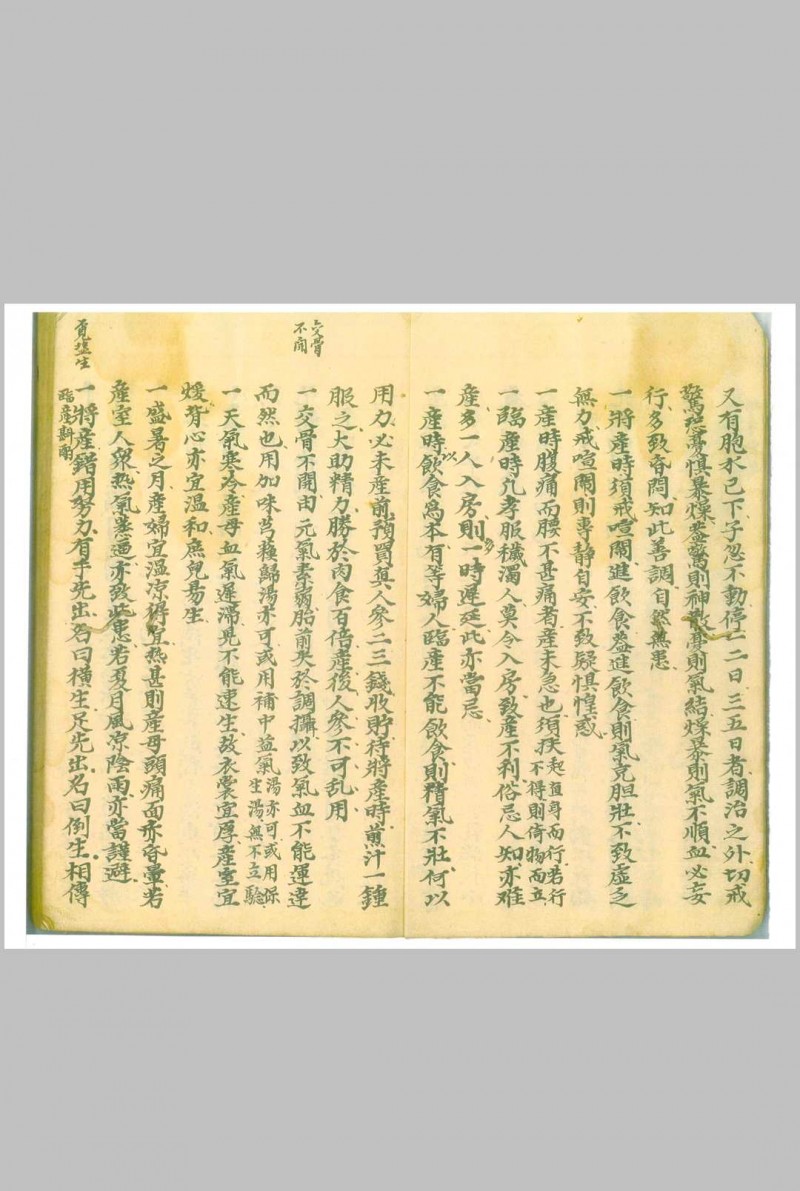 又有胞水已下子忽不動停一二日三五日者調治之外切戒
驚恐憂惧暴燥蓋驚則神散憂則氣結燥暴則氣不順血必妄
行多致昏悶知此善調自然無患
一將產時須戒喧鬧進飲食蓋進飲食則氣充胆壯不致虛乏
無力戒喧鬧則專靜自安不致疑惧惶惑
一產時腹痛而腰不甚痛者產未急也須扶起直身而行若行不得則倚物而立
一臨產時凡孝服穢濁人莫令入房致產不利俗忌人知亦难
產多一人入房則多一時遲延此亦當忌
一產時以飲食為本有等婦人臨產不能飲食則精氣不壯何以
用力必未產前預買真人參二三錢收貯待將產時煎汁一鍾
服之大助精力勝於肉食百倍產後人參不可乱用
交骨不開
一交骨不開由元氣素弱胎前失於調攝以致氣血不能運達
而然也用加味芎䓖歸湯亦可或用補中益氣湯亦可或用保生湯無不立驗
一天氣寒冷產母血氣遲滯兒不能速生故衣裳宜厚產室宜
煖背心亦宜溫和庶兒易生
一盛暑之月產婦宜溫凉得宜热甚則產母頭痛面赤昏暈若
產室人衆热氣蒸逼亦致此患若夏月風凉陰雨亦當謹避
一將產錯用努力有手先出名曰橫生足先出名曰倒生相傳
臨產斟酌